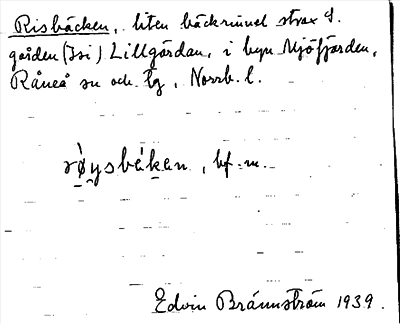 Risbäcken, liten bäckrännel strax S.
gården (Isi) Lillgårdan, i byn Mjöfjärden,
Råneå sn och tg, Norrb. l.
røysbækan, bf. m.
Edvin Brännström 1939.